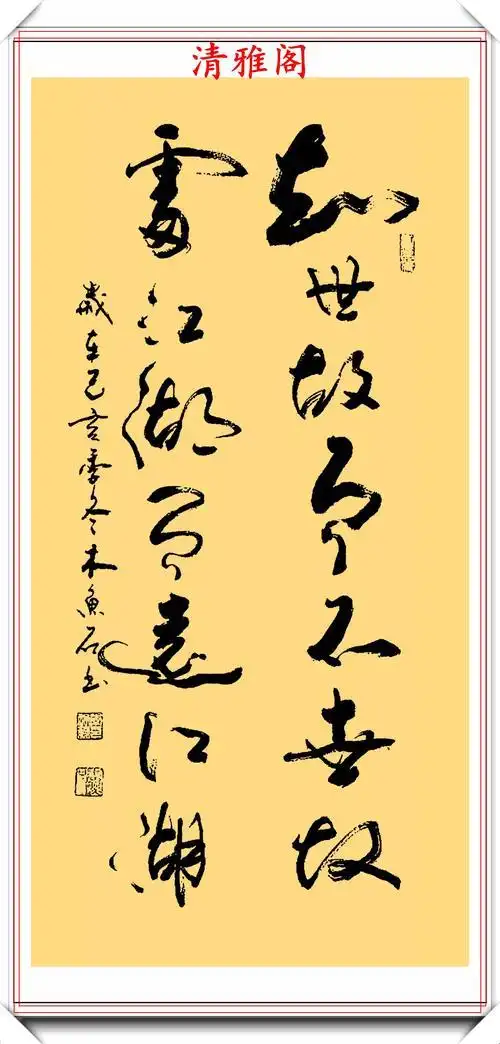 清雅阁
知世故而不世故
处江湖而远江湖
岁在己亥季冬木鱼石书